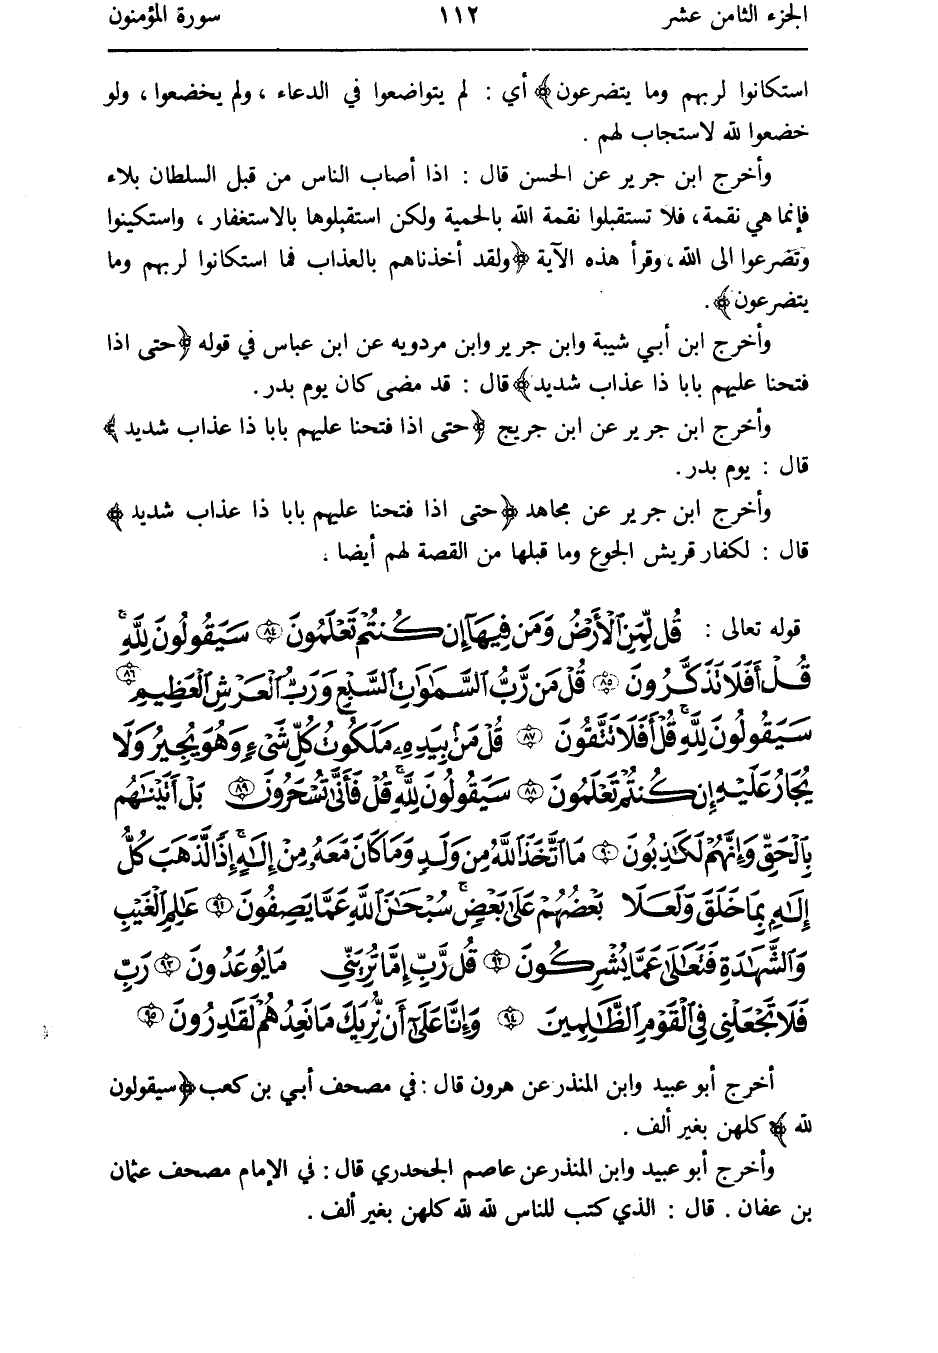 الجزء الثامن عشر ١١٢ سورة المؤمنون
استكانوا لربهم وما يتضرعون﴾ أي : لم يتواضعوا في الدعاء ، ولم يخضعوا ، ولو
خضعوا لله لاستجاب لهم .
وأخرج ابن جرير عن الحسن قال : اذا أصاب الناس من قبل السلطان بلاء
فإنما هي نقمة ، فلا تستقبلوا نقمة الله بالحمية ولكن استقبلوها بالاستغفار ، واستكينوا
وتضرعوا الى الله ، وقرأ هذه الآية ﴿ولقد أخذناهم بالعذاب فما استكانوا لربهم وما
يتضرعون﴾ .
وأخرج ابن أبي شيبة وابن جرير وابن مردويه عن ابن عباس في قوله ﴿حتى اذا
فتحنا عليهم بابا ذا عذاب شديد﴾ قال : قد مضى كان يوم بدر .
وأخرج ابن جرير عن ابن جريج ﴿حتى اذا فتحنا عليهم بابا ذا عذاب شديد ﴾
قال : يوم بدر .
وأخرج ابن جرير عن مجاهد ﴿حتى اذا فتحنا عليهم بابا ذا عذاب شديد ﴾
قال : لكفار قريش الجوع وما قبلها من القصة لهم أيضا .
قوله تعالى : قُل لِّمَنِ ٱلْأَرْضُ وَمَن فِيهَآ إِن كُنتُمْ تَعْلَمُونَ ٨٤ سَيَقُولُونَ لِلَّهِ ۚ
قُلْ أَفَلَا تَذَكَّرُونَ ٨٥ قُلْ مَن رَّبُّ ٱلسَّمَٰوَٰتِ ٱلسَّبْعِ وَرَبُّ ٱلْعَرْشِ ٱلْعَظِيمِ ٨٦
سَيَقُولُونَ لِلَّهِ ۚ قُلْ أَفَلَا تَتَّقُونَ ٨٧ قُلْ مَنۢ بِيَدِهِۦ مَلَكُوتُ كُلِّ شَىْءٍ وَهُوَ يُجِيرُ وَلَا
يُجَارُ عَلَيْهِ إِن كُنتُمْ تَعْلَمُونَ ٨٨ سَيَقُولُونَ لِلَّهِ ۚ قُلْ فَأَنَّىٰ تُسْحَرُونَ ٨٩ بَلْ أَتَيْنَٰهُم
بِٱلْحَقِّ وَإِنَّهُمْ لَكَٰذِبُونَ ٩٠ مَا ٱتَّخَذَ ٱللَّهُ مِن وَلَدٍ وَمَا كَانَ مَعَهُۥ مِنْ إِلَٰهٍ ۚ إِذًا لَّذَهَبَ كُلُّ
إِلَٰهٍۭ بِمَا خَلَقَ وَلَعَلَا بَعْضُهُمْ عَلَىٰ بَعْضٍ ۚ سُبْحَٰنَ ٱللَّهِ عَمَّا يَصِفُونَ ٩١ عَٰلِمِ ٱلْغَيْبِ
وَٱلشَّهَٰدَةِ فَتَعَٰلَىٰ عَمَّا يُشْرِكُونَ ٩٢ قُل رَّبِّ إِمَّا تُرِيَنِّى مَا يُوعَدُونَ ٩٣ رَبِّ
فَلَا تَجْعَلْنِى فِى ٱلْقَوْمِ ٱلظَّٰلِمِينَ ٩٤ وَإِنَّا عَلَىٰٓ أَن نُّرِيَكَ مَا نَعِدُهُمْ لَقَٰدِرُونَ ٩٥
أخرج أبو عبيد وابن المنذر عن هرون قال : في مصحف أبي بن كعب ﴿سيقولون
لله ﴾ كلهن بغير ألف .
وأخرج أبو عبيد وابن المنذر عن عاصم الجحدري قال : في الإمام مصحف عثمان
بن عفان . قال : الذي كتب للناس لله لله كلهن بغير ألف .